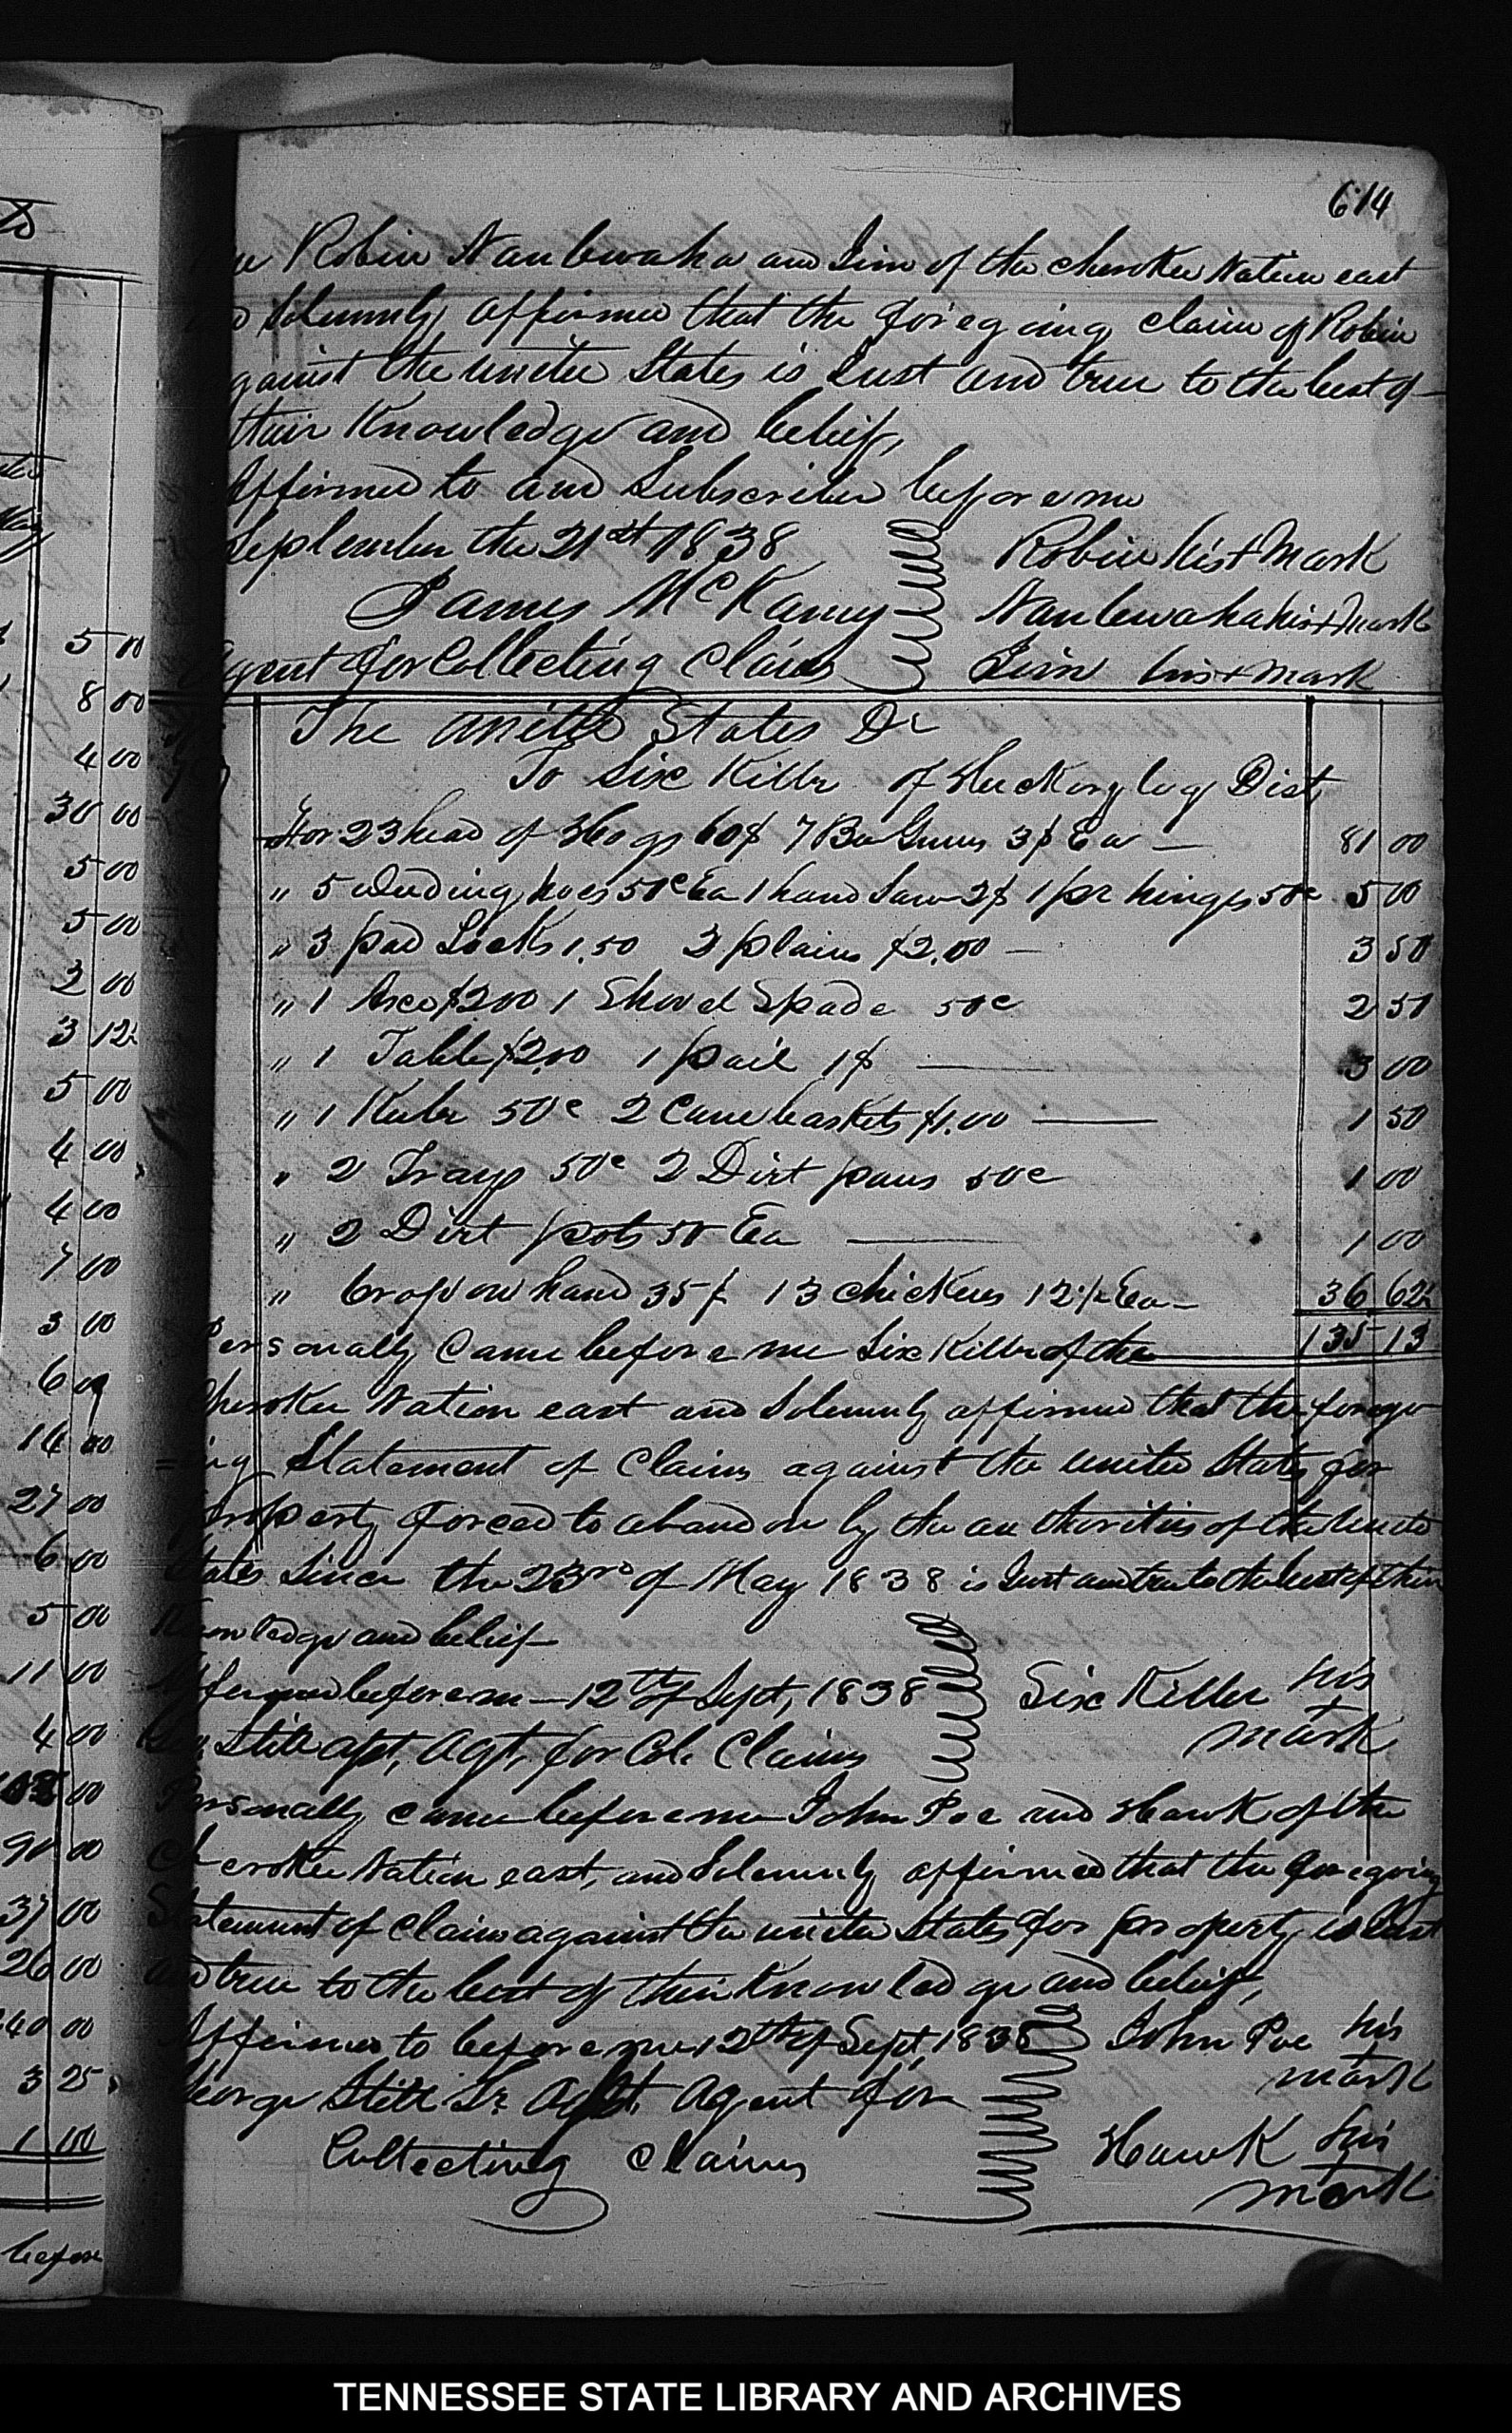 614
me Robin Nanlewaha and Sim of the cherokee Nation east
and Solemnly affirmed that the foregoing claim of Robin
against the united States is Just and true to the best of
their Knowledge and belief,
Affirmed to and Subscribed before me
September the 21st 1838
Robin his + Mark
James McKamy
Nanlewaha his + Mark
Agent for Collecting Claims
Sim his + mark
The united States Dr
To Six Killer of Huckory log Dist
For 23 head of Hogs 60$ 7 Bee Gums 3$ Ea — 81 00
" 5 Weeding hoes 50c Ea 1 hand Saw 2$ 1 pr hinges 50c 5 00
" 3 pad Locks 1.50 2 plains $2.00 — 3 50
" 1 Axe $2.00 1 Shovel Spade 50c 2 50
" 1 Table $2.00 1 pail 1$ — 3 00
" 1 Keeler 50c 2 Cane baskets $1.00 — 1 50
" 2 Trays 50c 2 Dirt pans 50c 1 00
" 2 Dirt pots 50 Ea — 1 00
" Crop on hand 35$ 13 chickens 12½ Ea — 36 62½
135 13
Personally Came before me Six Killer of the
Cherokee Nation east and Solemnly affirmed that the forego
=ing Statement of Claims against the united States for
property forced to abandon by the authorities of the United
States Since the 23rd of May 1838 is Just and true to the best of their
Knowledge and belief
Affirmed before me — 12th of Sept, 1838
Six Killer his
mark
Geo. Still apt, Agt, for Col. Claims
Personally came before me John Poe and Hawk of the
Cherokee Nation east, and Solemnly affirmed that the foregoing
Statement of Claim against the united States for property is Just
and true to the best of their Knowledge and belief,
Affirmed to before me 12th of Sept 1838
John Poe his
mark
George Still Sr Appt. Agent for
Collecting Claims
Hawk his
mark
5 00
8 00
4 00
30 00
5 00
5 00
2 00
3 12½
5 00
4 00
4 00
7 00
3 00
6 00
14 00
27 00
6 00
5 00
11 00
4 00
00
90 00
37 00
26 00
40 00
3 25
1 00
before
TENNESSEE STATE LIBRARY AND ARCHIVES